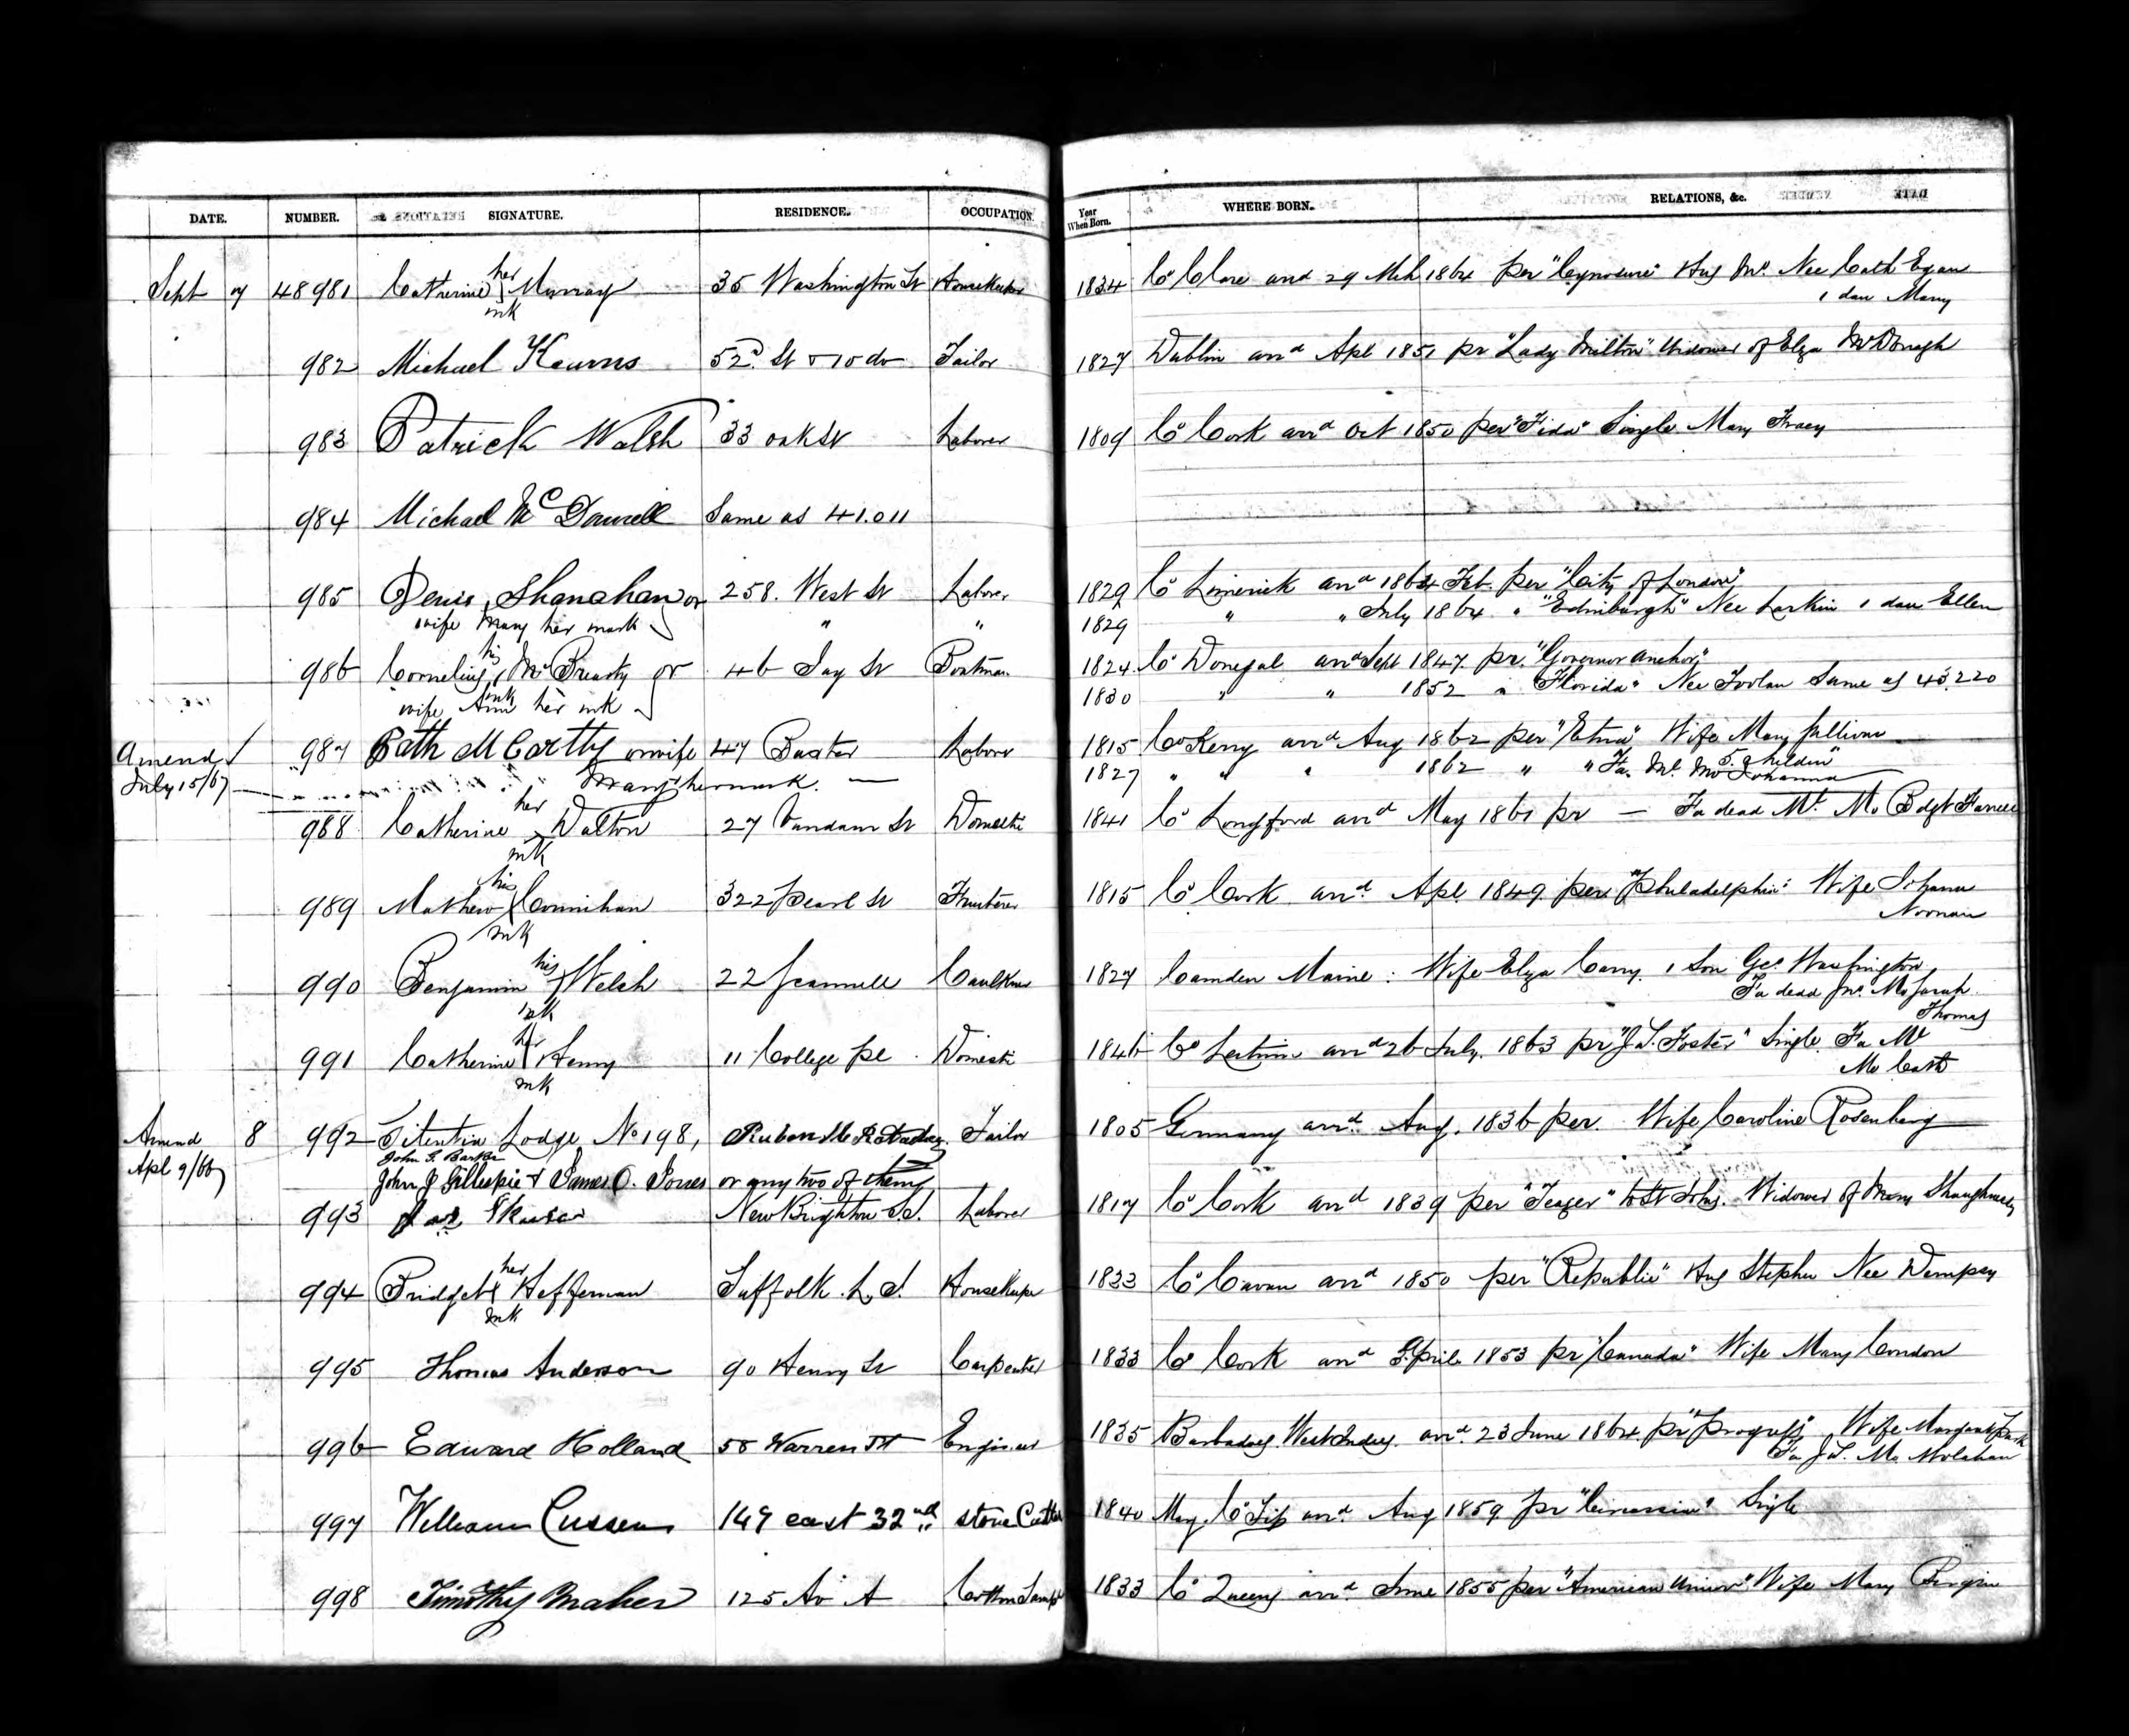 DATE. NUMBER. SIGNATURE. RESIDENCE. OCCUPATION. Year When Born. WHERE BORN. RELATIONS, &c.
Sept 7 48981 Catherine her mk Murray 35 Washington St Housekeeper 1834 Co Clare arrd 29 Mch 1864 per "Cynosure" Hus Jno Nee Cath Egan
1 dau Mary
982 Michael Kearns 52d St & 10 do Tailor 1827 Dublin arrd Apl 1851 pr "Lady Milton" Widower of Eliza McDonagh
983 Patrick Walsh 33 oak St Laborer 1809 Co Cork arrd Oct 1850 per "Fida" Single Mary
984 Michael McDonnell Same as 41.011
985 Denis Shanahan or 258 West St Laborer 1829 Co Limerick arrd 1864 Feb. per "City of London"
wife Mary her mark " " 1829 " " July 1864 " "Edinburgh" Nee Larkin 1 dau Ellen
986 Cornelius his mk McBrearty or 46 Jay St Boatman 1824 Co Donegal arrd Sept 1847 pr. "Governor
wife Ann her mk 1830 " " 1852 " "Florida" Nee Same as 43.220
Amend 987 Path McCartty or wife 47 Baxter Laborer 1815 Co Kerry arrd Aug 1862 per "Etna" Wife Mary Sullivan
5 children
July 15/67 Mary her mark. 1827 " " " 1862 " " Fa. Ml. Mo Johanna
988 Catherine her mk Dalton 27 Vandam St Domestic 1841 Co Longford arrd May 1861 pr — Fa dead Mt. Mo Bdgt Farrell
989 Mathew his mk Counihan 322 Pearl St Fruiterer 1815 Co Cork arrd Apl 1849 per "Philadelphia" Wife Johana
Noonan
990 Benjamin his mk Welsh 22 Scammell Caulker 1827 Camden Maine: Wife Eliza Carry. 1 Son Geo Washington
Fa dead Jno. Mo Sarah
Thomas
991 Catherine her mk Henry 11 College pl Domestic 1846 Co Leitrim arrd 26 July. 1863 pr "J.S. Foster" Single Fa Mt
Mo Cath
Amend 8 992 Lodge No 198, Ruben Tailor 1805 Germany arrd. Aug. 1836 per. Wife Caroline Rosenberg
Apl 9/66 John G. Barker
John J Gillespie & James O. Jones or any two of them
993 New Brighton S.I. Laborer 1817 Co Cork arrd 1839 per "Teazer" to St Johns. Widower of Mary Shaughnessy
994 Bridget her mk Heffernan Suffolk. L.I. Housekeeper 1833 Co Cavan arrd 1850 per "Republic" Hus Stephen Nee Dempsey
995 Thomas Anderson 90 Henry St Carpenter 1833 Co Cork arrd April 1853 pr "Canada" Wife Mary Condon
996 Edward Holland 58 Warren St Engineer 1835 Barbadoes West Indies. arrd. 23 June 1864 pr "Progress" Wife Margaret Park
Fa J.T. Mo Molahan
997 William Cussen 149 east 32nd stone Cutter 1840 May, Co Tip arrd. Aug 1859 pr "Circassian" Single
998 Timothy Maher 125 Av A Cotton Samp 1833 Co Queens arrd. June 1855 per "American Union" Wife Mary Bergin